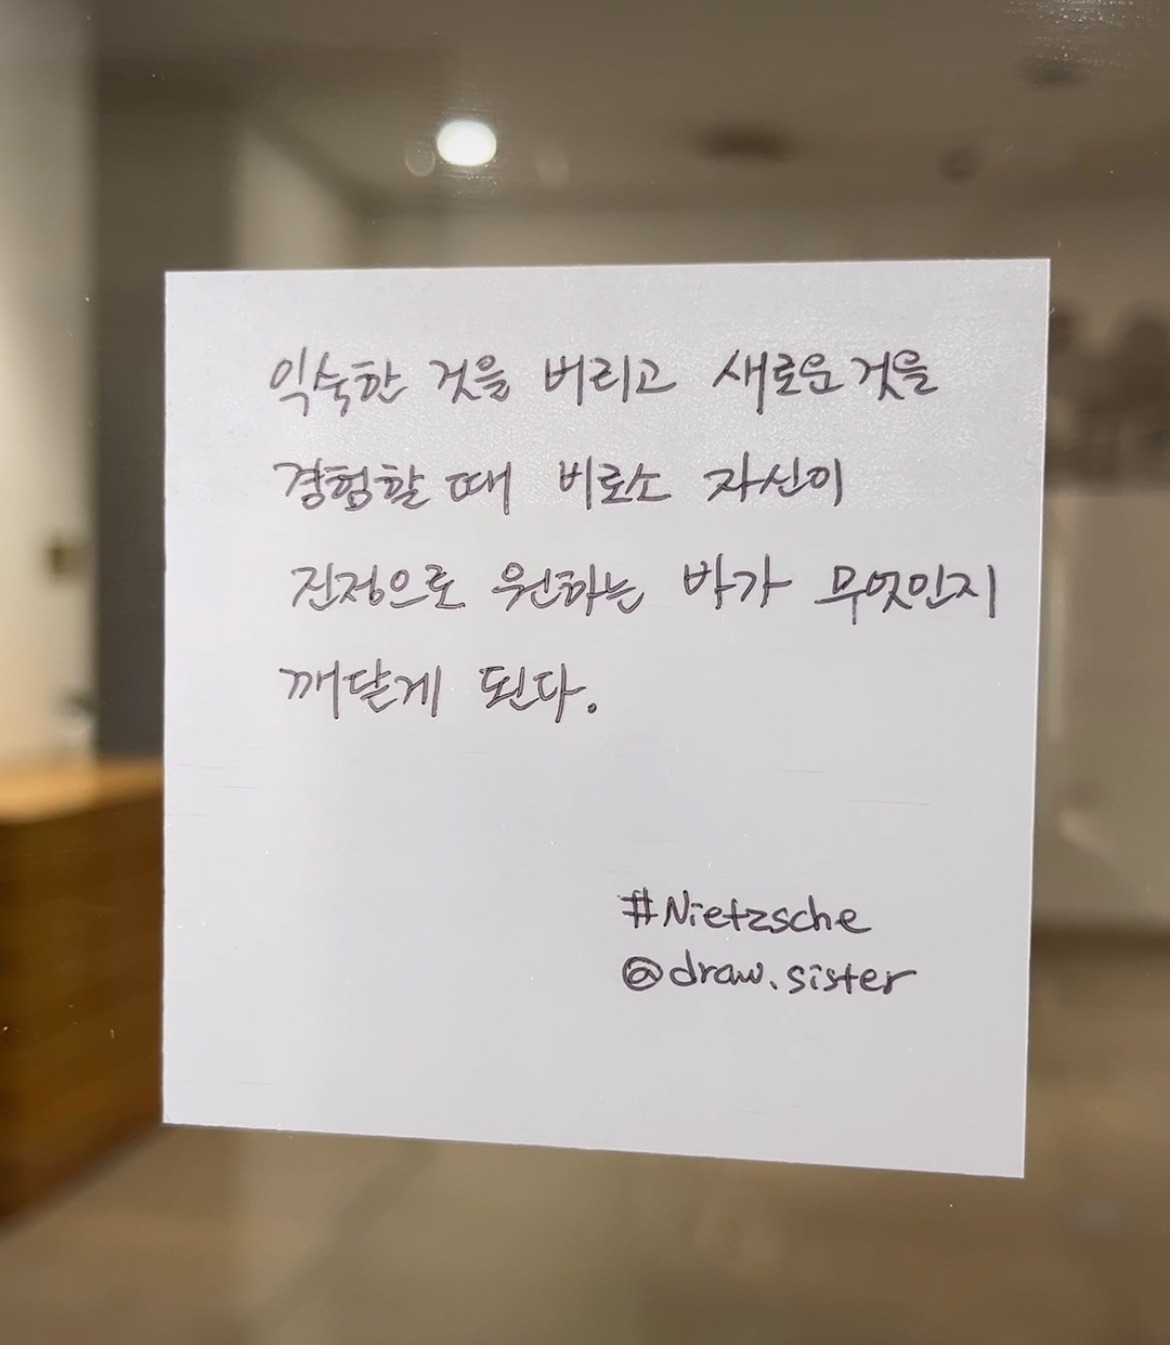 익숙한 것을 버리고 새로운 것을
경험할 때 비로소 자신이
진정으로 원하는 바가 무엇인지
깨닫게 된다.
#Nietzsche
@draw.sister